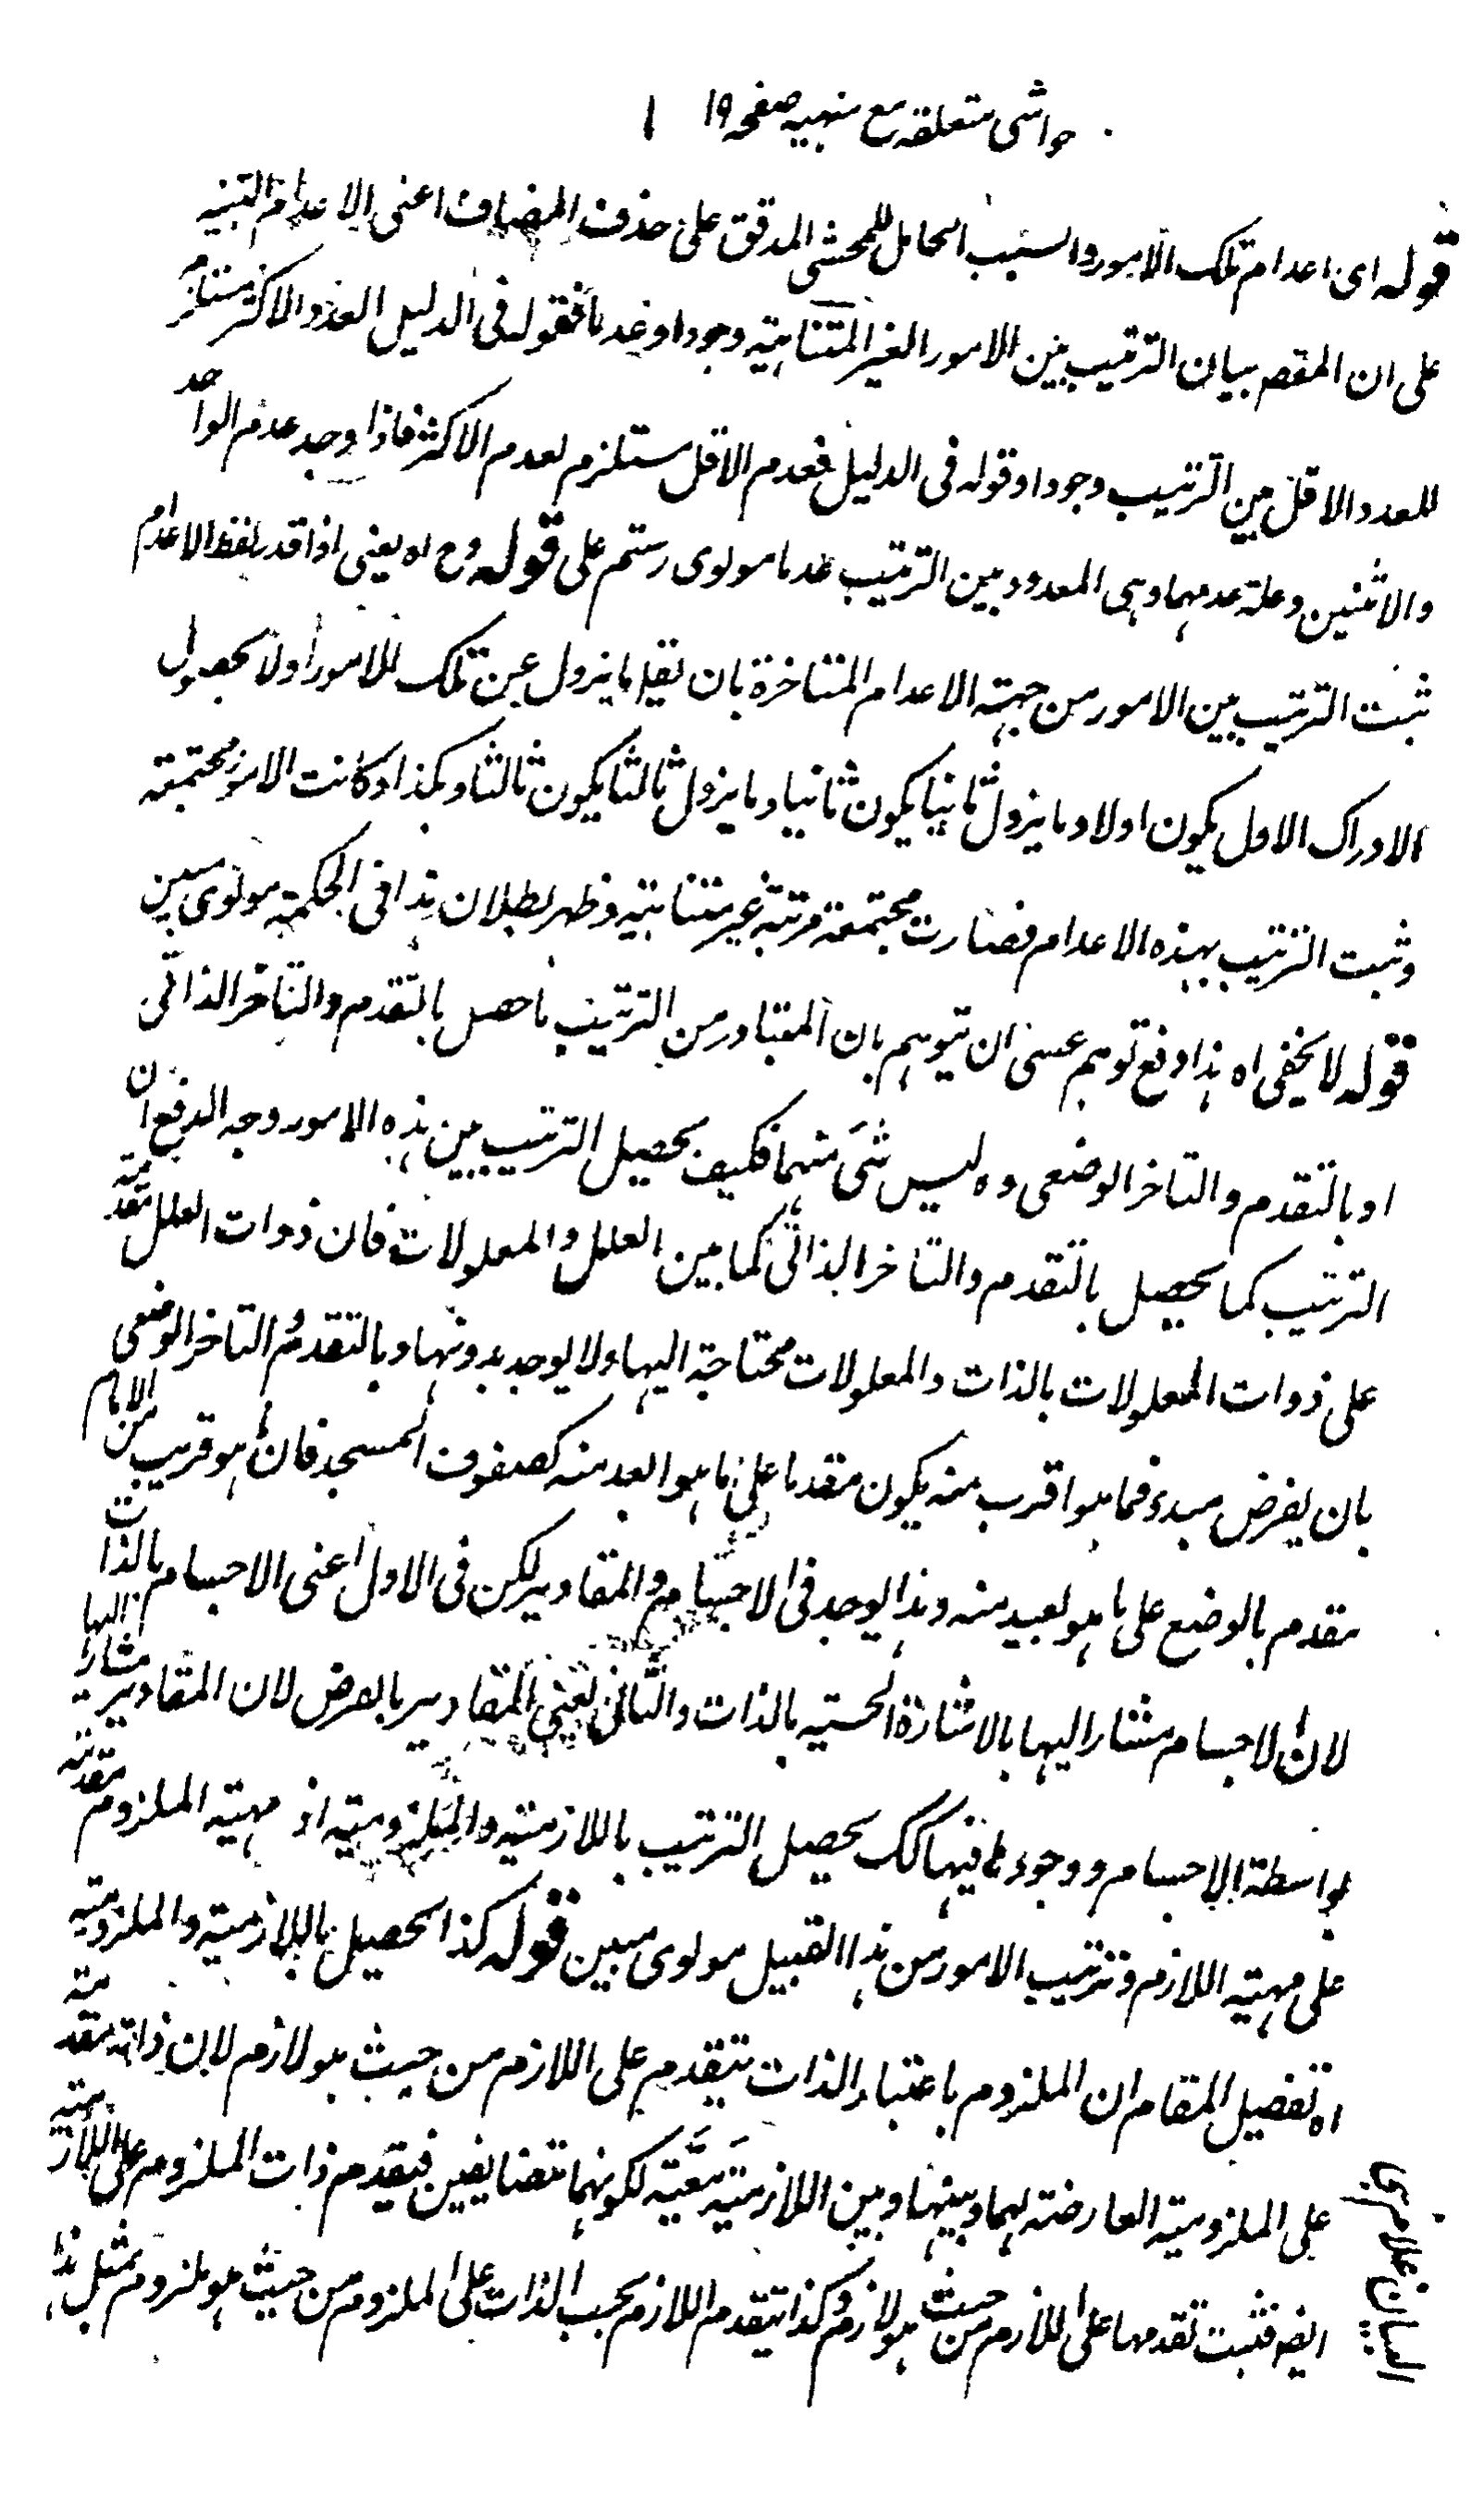 حواشى متعلقه مع منهيه صفحه ١٩ ١
قوله اى اعدام تلك الامور والسبب الحامل للمحشى المدقق على حذف المضاف اعنى الاعدام التنبيه
على ان المقصر بيان الترتيب بين الامور الغير المتناهية وجودا وعدما فقوله فى الدليل العدد الاكثر مستلزم
للعدد الاقل بين الترتيب وجودا وقوله فى الدليل فعدم الاقل مستلزم لعدم الاكثر فاذا وجد عدم الواحد
والاثنين وعلة عدمهما وهى المعدود بين الترتيب عدما مولوى رستم على قوله وح اه يعنى اذا قدر لفظ الاعدام
ثبت الترتيب بين الامور من جهة الاعدام المتاخرة بان يقر ما يزول عن تلك الامور اولا بحصول
الادراك الاول يكون اولا وما يزول ثانيا يكون ثانيا وما يزول ثالثا يكون ثالثا وهكذا وكانت الامور مجتمعة
وثبت الترتيب بهذه الاعدام فصارت مجتمعة مرتبة غير متناهية وظهر بطلان هذا فى الحكمة مولوى مبين
قوله لا يخفى اه هذا دفع توهم عسى ان يتوهم بان المتبادر من الترتيب ما حصل بالتقدم والتاخر الذاتى
او بالتقدم والتاخر الوضعى وه ليس شئ منهما فكيف يحصل الترتيب بين هذه الامور وجه الدفع ان
الترتيب كما يحصل بالتقدم والتاخر الذاتى كما بين العلل والمعلولات فان ذوات العلل متقدمة
على ذوات المعلولات بالذات والمعلولات محتاجة اليها ولا يوجد بدونها وبالتقدم والتاخر الوضعى
بان يفرض مبدء فما هو اقرب منه يكون مقدما على ما هو ابعد منه كصفوف المسجد فان ما هو قريب من الامام
مقدم بالوضع على ما هو بعيد منه وهذا يوجد فى الاجسام والمقادير لكن فى الاول اعنى الاجسام بالذات
لان الاجسام مشار اليها بالاشارة الحسية بالذات والثانى يعنى المقادير بالعرض لان المقادير مشار اليها
بواسطة الاجسام ووجودها فيها كك يحصل الترتيب باللازمية والملزومية اذ مهية الملزوم متقدمة
على مهية اللازم وترتيب الامور من هذا القبيل مولوى مبين قوله كذا يحصل باللازمية والملزومية
اه تفصيل المقام ان الملزوم باعتبار الذات يتقدم على اللازم من حيث هو لازم لان ذاته متقدمة
على الملزومية العارضة لهما وبينها وبين اللازمية معية لكونهما متضايفين فيتقدم ذات الملزوم على اللازمية
ايضه فثبت تقدمها على اللازم من حيث هو لازم وكذا يتقدم اللازم بحسب الذات على الملزوم من حيث هو ملزوم بمثل هذا
البيان